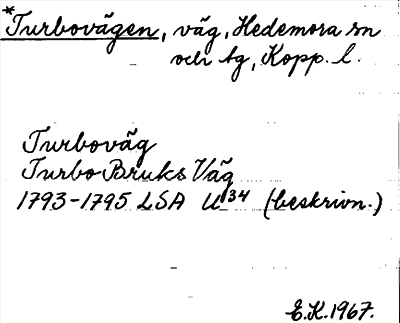 *Turbovägen, väg, Hedemora sn
och tg, Kopp. l.
Turboväg
Turbo Bruks Väg
1793-1795 LSA U34 (beskrivn.)
E.K.1967.